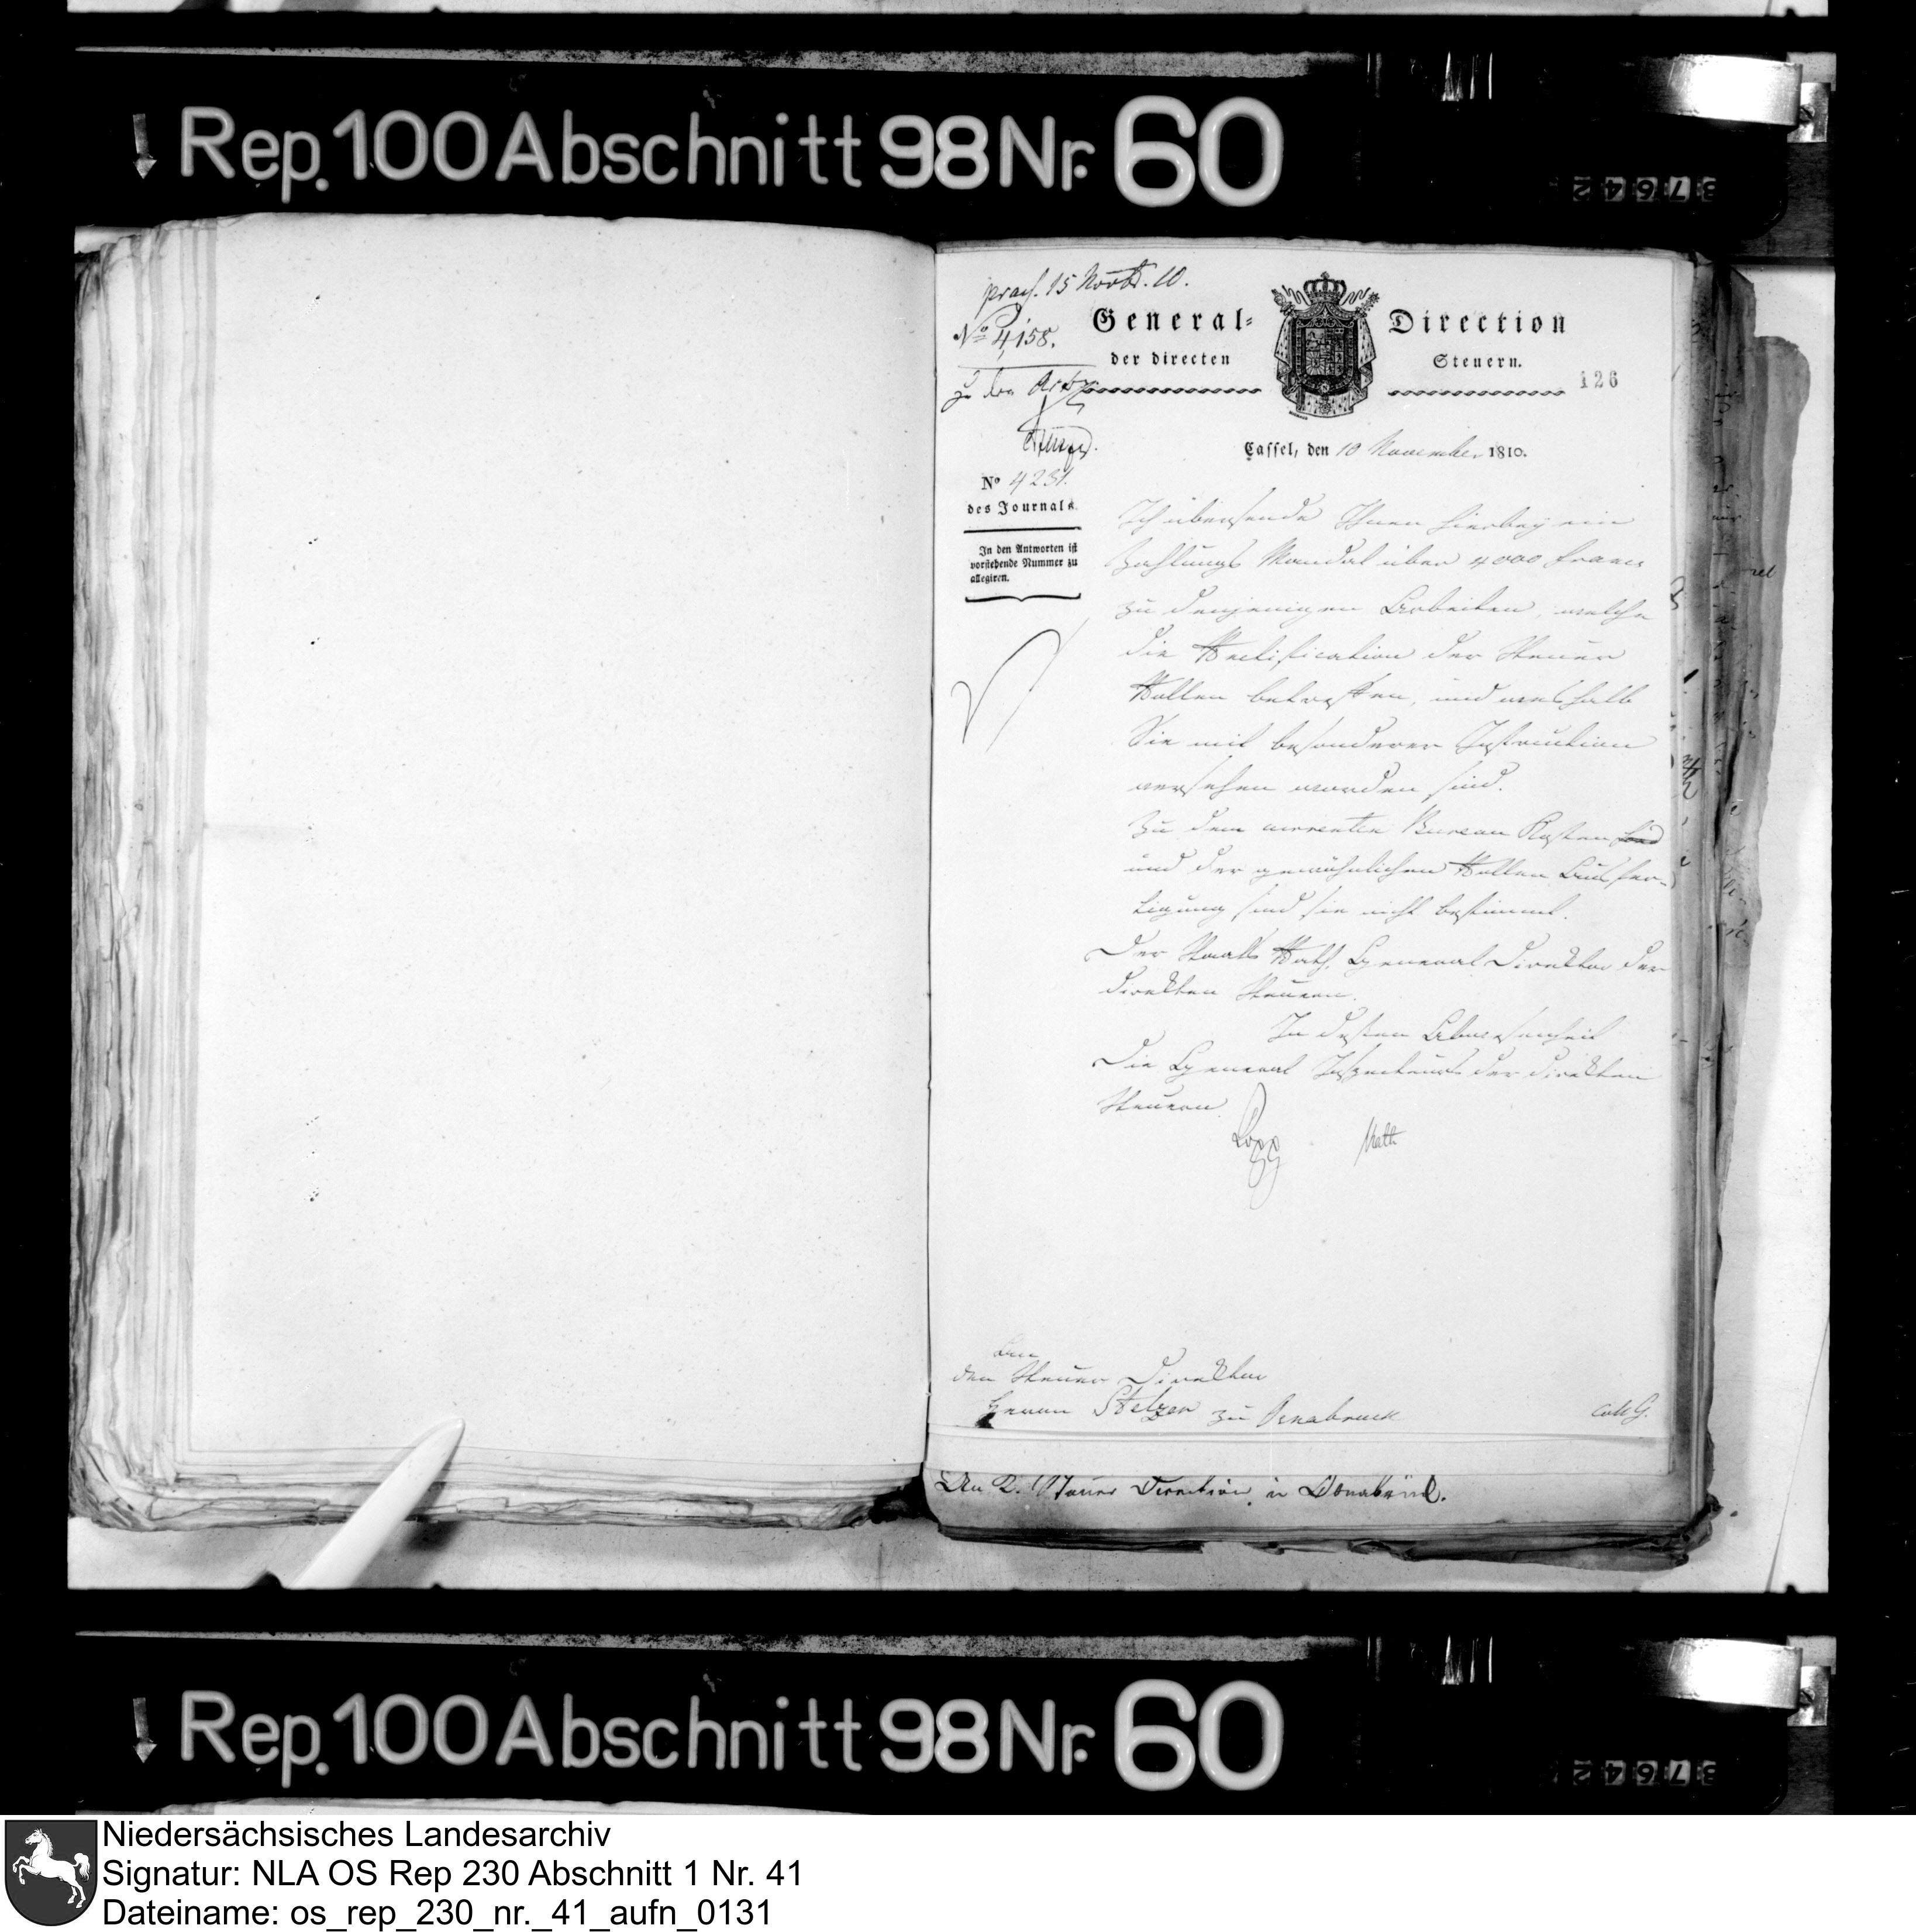 Rep. 100 Abschnitt 98 Nr. 60
37642
praes. 15 Novbr. 10.
No 4,158.
zu den
General- Direction
der directen Steuern.
126
Cassel, den 10 November 1810.
No 4231.
des Journals.
In den Antworten ist
vorstehende Nummer zu
allegiren.
Ich übersende Ihnen hierbey ein
Zahlungs Mandat über 4000 Francs
zu denjenigen Arbeiten, welche
die Rectification der Steuer
Rollen betreffen, und weshalb
Sie mit besonderer Instruction
versehen worden sind.
Zu den currenten Bureau Kosten
und der gewöhnlichen Rollen Ausfer-
tigung sind sie nicht bestimmt.
Der Staats Rath, General Direktor der
direkten Steuern.
In dessen Abwesenheit
Die General Inspecteurs der direkten
Steuern.
An
den Steuer Direktor
Herrn Stelzer zu Osnabruck
An D. Steuer Direction in Osnabrück.
Rep. 100 Abschnitt 98 Nr. 60
37642
Niedersächsisches Landesarchiv
Signatur: NLA OS Rep 230 Abschnitt 1 Nr. 41
Dateiname: os_rep_230_nr._41_aufn_0131